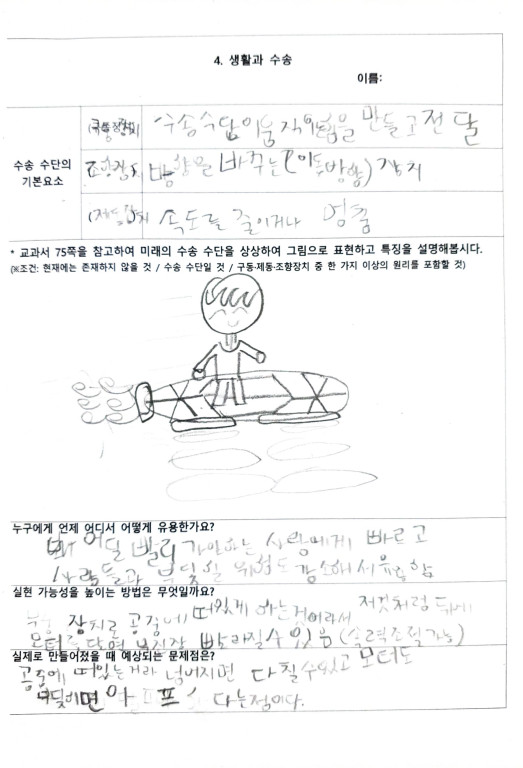 4. 생활과 수송
이름:
수송 수단의
기본요소
(구동장치) 수송수단이 움직임을 만들고 전달
조향장치 방향을 바꾸는(이동방향) 장치
(제동장치 속도를 줄이거나 멈춤
* 교과서 75쪽을 참고하여 미래의 수송 수단을 상상하여 그림으로 표현하고 특징을 설명해봅시다.
(※조건: 현재에는 존재하지 않을 것 / 수송 수단일 것 / 구동·제동·조향장치 중 한 가지 이상의 원리를 포함할 것)
누구에게 언제 어디서 어떻게 유용한가요?
어딜 빨리 가야하는 사람에게 빠르고
사람들과 부딪힐 위험도 감소해서 유용함
실현 가능성을 높이는 방법은 무엇일까요?
장치로 공중에 떠있게 하는것이라서 저것처럼 뒤에
모터를 달면 빨라질수 있음 (속력조절가능)
실제로 만들어졌을 때 예상되는 문제점은?
공중에 떠있는거라 넘어지면 다칠수있고 모터도
다는점이다.